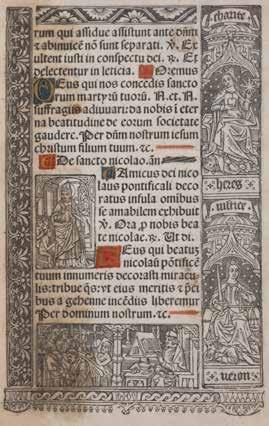 rum qui assidue assistunt ante dñm
et abinuicẽ nõ sunt separati. ℣. Ex
ultent iusti in conspectu dei. ⁊. Et
delectentur in leticia. Oremus
Deus qui nos concedis sancto
rum martyrũ tuorũ. N. et. N.
suffragiis adiuuari: da nobis ĩ eter
na beatitudine de eorum societate
gaudere. Per dñm nostrum iesum
christum filium tuum. ⁊c.
De sancto nicolao. añ
Amicus dei nico
laus pontificali deco
ratus infula omnibus
se amabilem exhibuit
℣. Ora ꝓ nobis bea
te nicolae. ⁊. Ut di.
Deus qui beatũ
nicolaũ põtificẽ
tuum innumeris decorasti miracu
lis: tribue q̃s: vt eius meritis et p̃ci
bus a gehenne incẽdiis liberemur
Per dominum nostrum. ⁊c.
charite
heres
iustice
neron